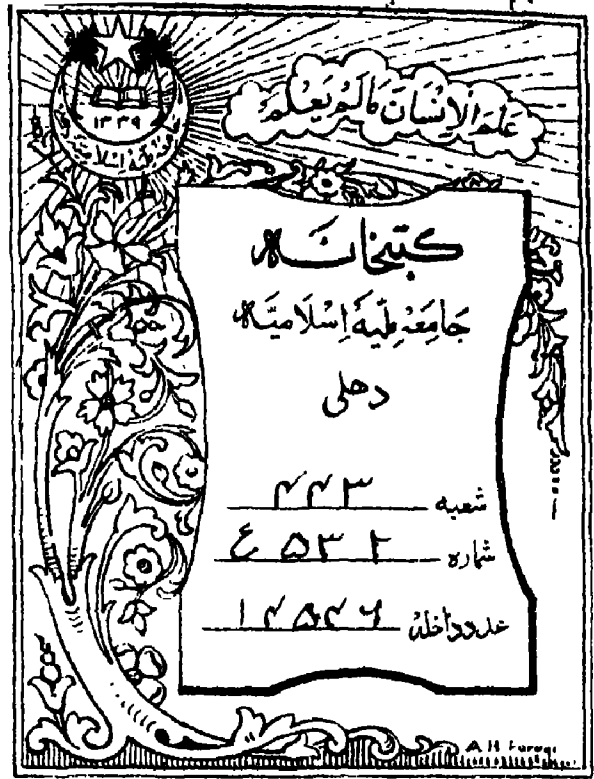 عَلَّمَ الْاِنْسَانَ مَالَمْ يَعْلَمْ
۱۳۳۹
کتبخانہ
جَامِعَہ مِلّیَہ اِسْلَامیَّہ
دهلی
شعبہ ۴۴۳
شمارہ ۵۳۲ ع
عدد داخلہ ۱۴۵۴۶
A H Faruqi